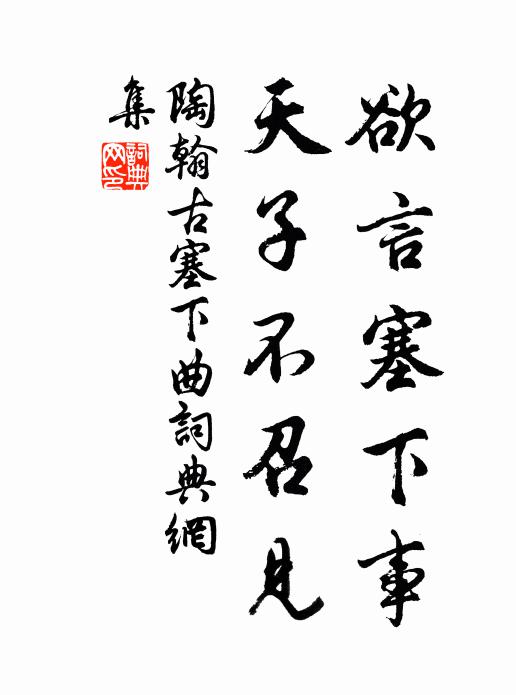 欲言塞下事
天子不召見
陶翰古塞下曲詞典網
集
詞典
网印